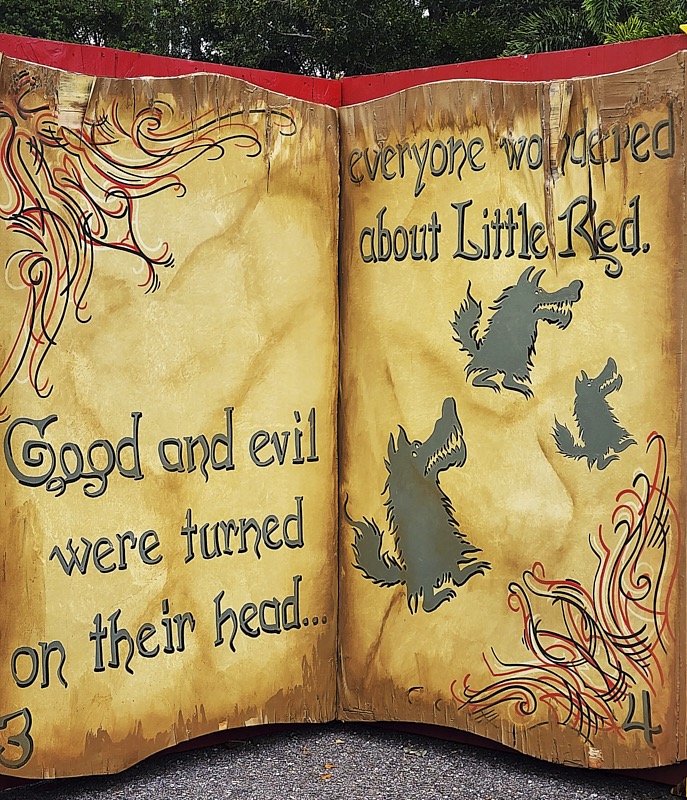 Good and evil
were turned
on their head...
3
everyone wondered
about Little Red.
4